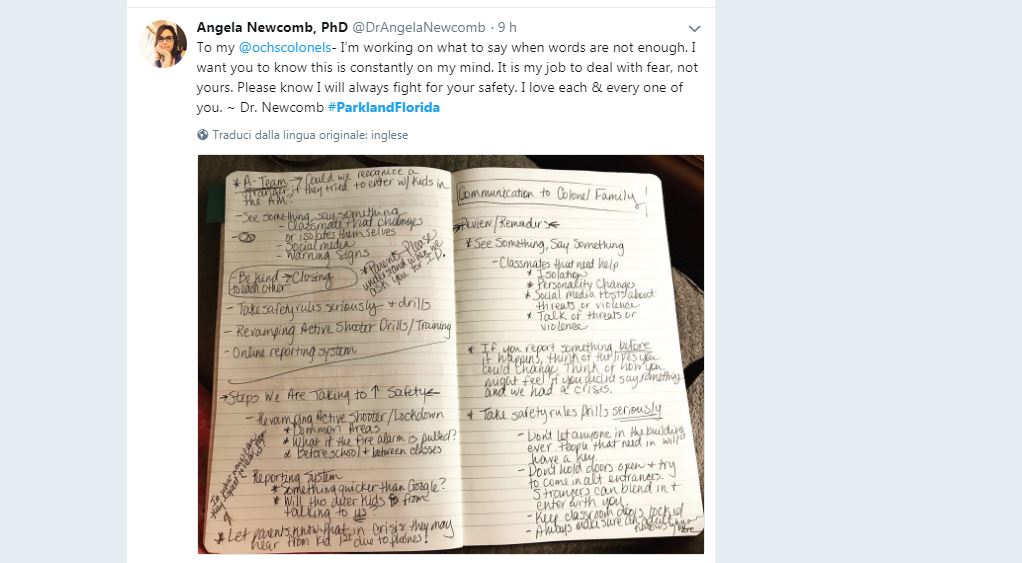 Angela Newcomb, PhD @DrAngelaNewcomb · 9 h
To my @ochscolonels- I'm working on what to say when words are not enough. I
want you to know this is constantly on my mind. It is my job to deal with fear, not
yours. Please know I will always fight for your safety. I love each & every one of
you. ~ Dr. Newcomb #ParklandFlorida
Traduci dalla lingua originale: inglese
* A-Team → Could we recognize a
stranger if they tried to enter w/ kids in
the AM?
- See something, say something
- Classmate that changes
or isolates themselves
- Social media
- Warning Signs
- Be kind → Closing
to each other
* Parents Please
understand when we
ask you for I.D.
- Take safety rules seriously + drills
- Revamping Active Shooter Drills/Training
- Online reporting system
→ Steps We Are Taking to ↑ Safety
- Revamping Active Shooter/Lockdown
* Common Areas
* What if the fire alarm is pulled?
* Before school + between classes
Reporting System
* Something quicker than Google?
* Will this deter kids from
talking to us?
* Let parents know that in crisis they may
hear from kid 1st due to phones!
Communication to Colonel Family!
Review/Reminders
* See Something, Say Something
- Classmates that need help
* Isolation
* Personality Change
* Social Media Posts about
threats or violence
* Talk of threats or
violence
* If you report something before
it happens, think of the lives you
could change. Think of how you
might feel if you did say something
and we had a crisis.
* Take safety rules Drills seriously
- Don't let anyone in the building
ever. People that need in will
have a key.
- Don't hold doors open + try
to come in alt entrances.
Strangers can blend in +
enter with you.
- Keep classroom doors locked
- Always make sure an adult